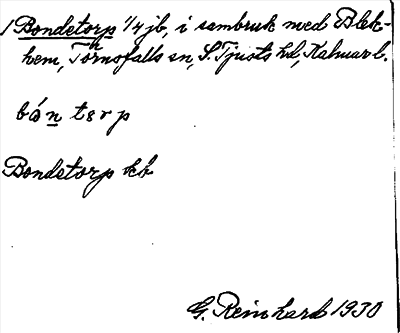 1 Bondetorp 1/4 jb, i sambruk med Blek-
hem, Törnsfalls sn, S. Tjusts hd, Kalmar l.
bón tərp
Bondetorp kb
G. Reinhard 1930